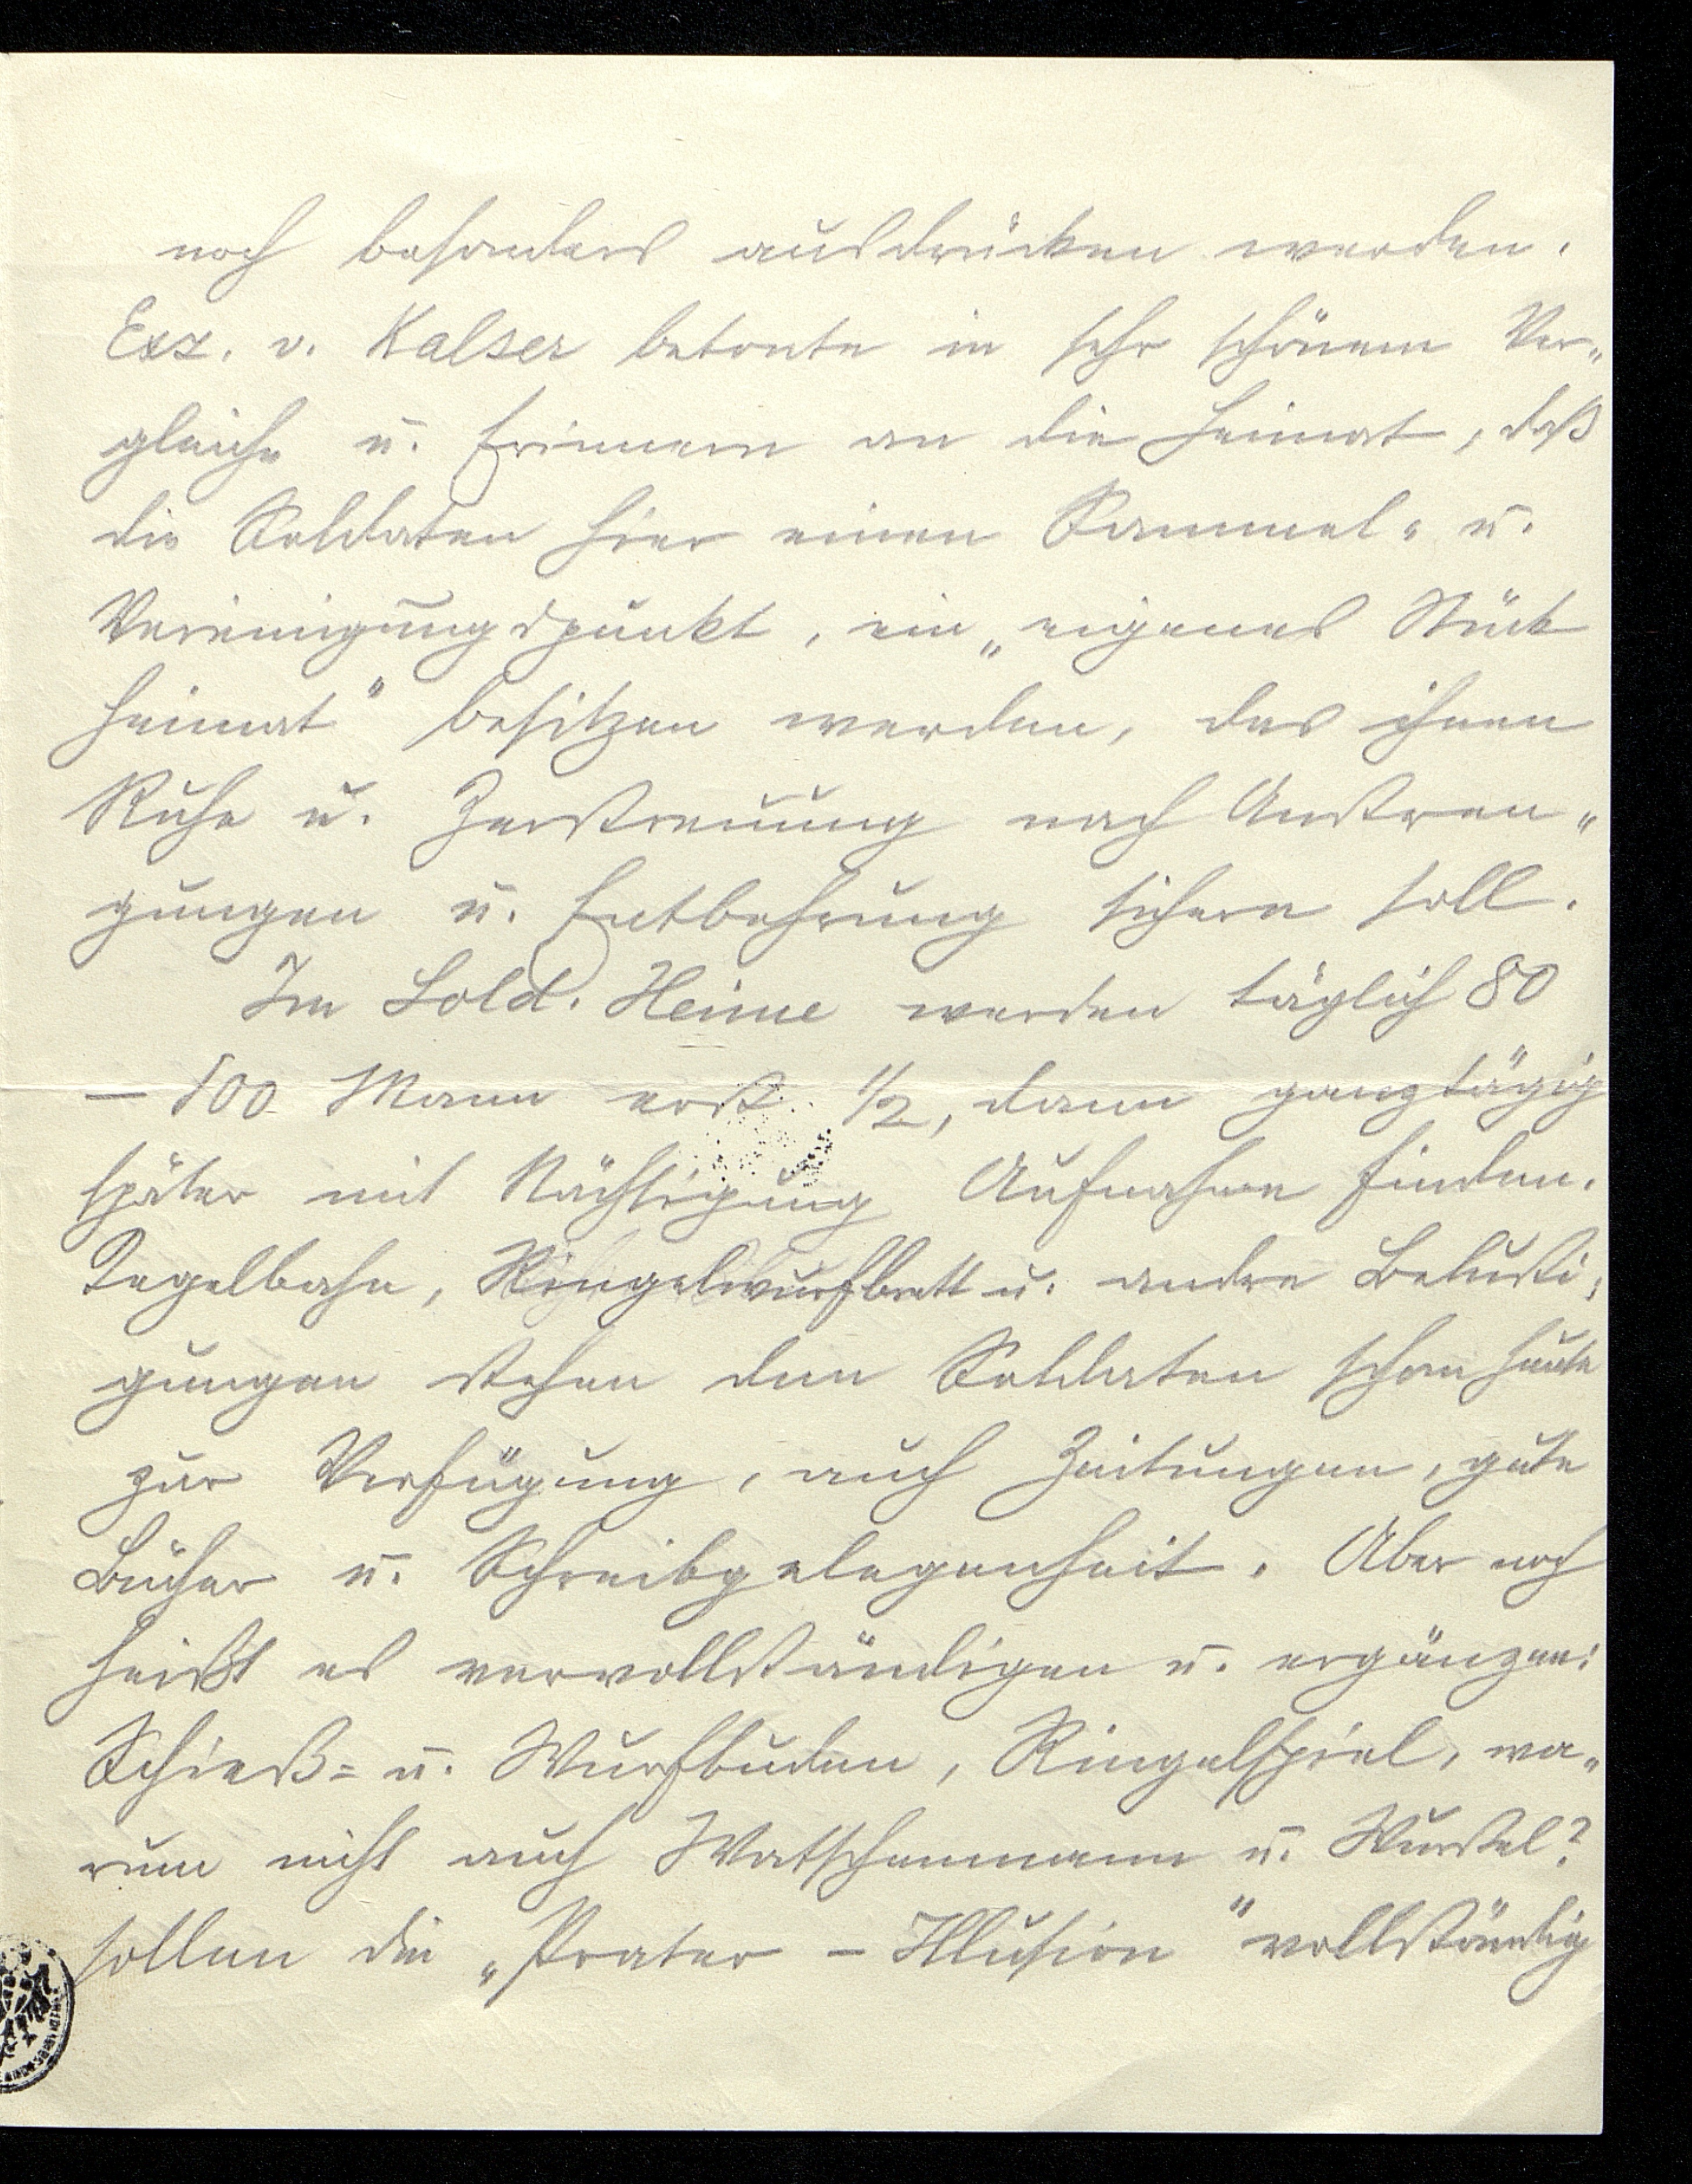 noch besonders ausdrücken werden.
Exz. v. Kalser betonte in sehr schönem Ver-
gleiche u. Erinnern an die Heimat, daß
die Soldaten hier einen Sammel- u.
Vereinigungspunkt, ein „eigenes Stück
Heimat" besitzen werden, das ihnen
Ruhe u. Zerstreuung nach Anstren-
gungen u. Entbehrung sichern soll.
Im Sold. Heime werden täglich 80
– 100 Mann erst 1/2, dann ganztägig
später mit Nächtigung Aufnahme finden.
Kegelbahn, Ringelwurfbrett u. andre Belusti-
gungen stehen den Soldaten schon heute
zur Verfügung, auch Zeitungen, gute
Bücher u. Schreibgelegenheit. Aber noch
heißt es vervollständigen u. ergänzen:
Schieß- u. Wurfbuden, Ringelspiel, wa-
rum nicht auch Watschenmann u. Wurstel?
sollen die „Prater – Illusion" vollständig